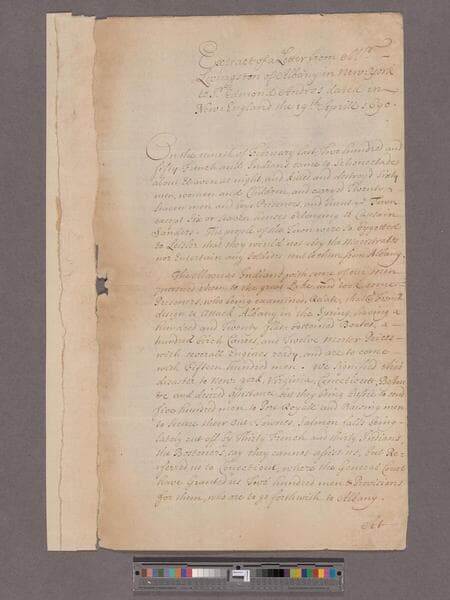 Extract of a Letter from Mr.
Livingston of Albany in New York
to Sr. Edmond Andros dated in
New England the 19th Aprill 1690.
On the nineth of February last, two hundred and
fifty French and Indians came to Schonectade
about Eleaven at night, and killed and destroyd Sixty
men, women and Children, and carryed Twenty
seaven men and boys Prisoners, and burnt ye Town
except Six or Seaven houses belonging to Captain
Sanders. The people of the Town were so bygotted
to Leisler that they would not obey the Magistrates
nor Entertain any Soldiers sent to them from Albany.
The Maquas Indians with some of our men
pursued them to the great Lake, and took some
Prisoners, who being examined, Relate, that they
design to attack Albany in the Spring, having a
hundred and Twenty flat bottomed Boates, a
hundred Birch Canoes, and Twelve Morter Peeces
with severall Engines ready, and are to come
with Fifteen hundred men. We signified this
disaster to New York, Virginia, Conecticutt, Boston
and desired assistance but they being before to send
five hundred men to Port Royall and Raising men
to secure there Out Townes, Salmon falls being
lately cut off by Thirty French and thirty Indians,
the Bostoners say they cannot assist us, but Re-
ferred us to Conecticut, where the Generall Court
have Granted us Two hundred men & Provisions
for them, who are to go forthwith to Albany.